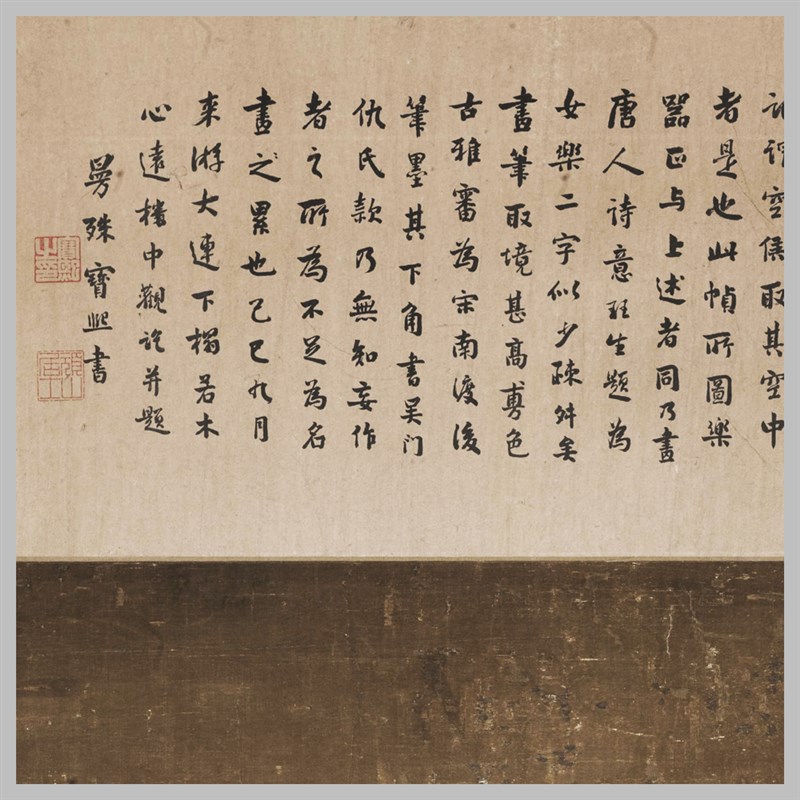 謂空侯取其空中
者是也此幀所圖樂
器正与上述者同乃畫
唐人詩意 生題為
女樂二字似少疎舛矣
畫筆取境甚高 色
古雅審為宋南渡後
筆墨其下角書吴门
仇氏款乃無知妄作
者之所為不足為名
畫之累也己巳九月
来游大連下榻若木
心遠樓中觀訖并題
曼殊寶熙書